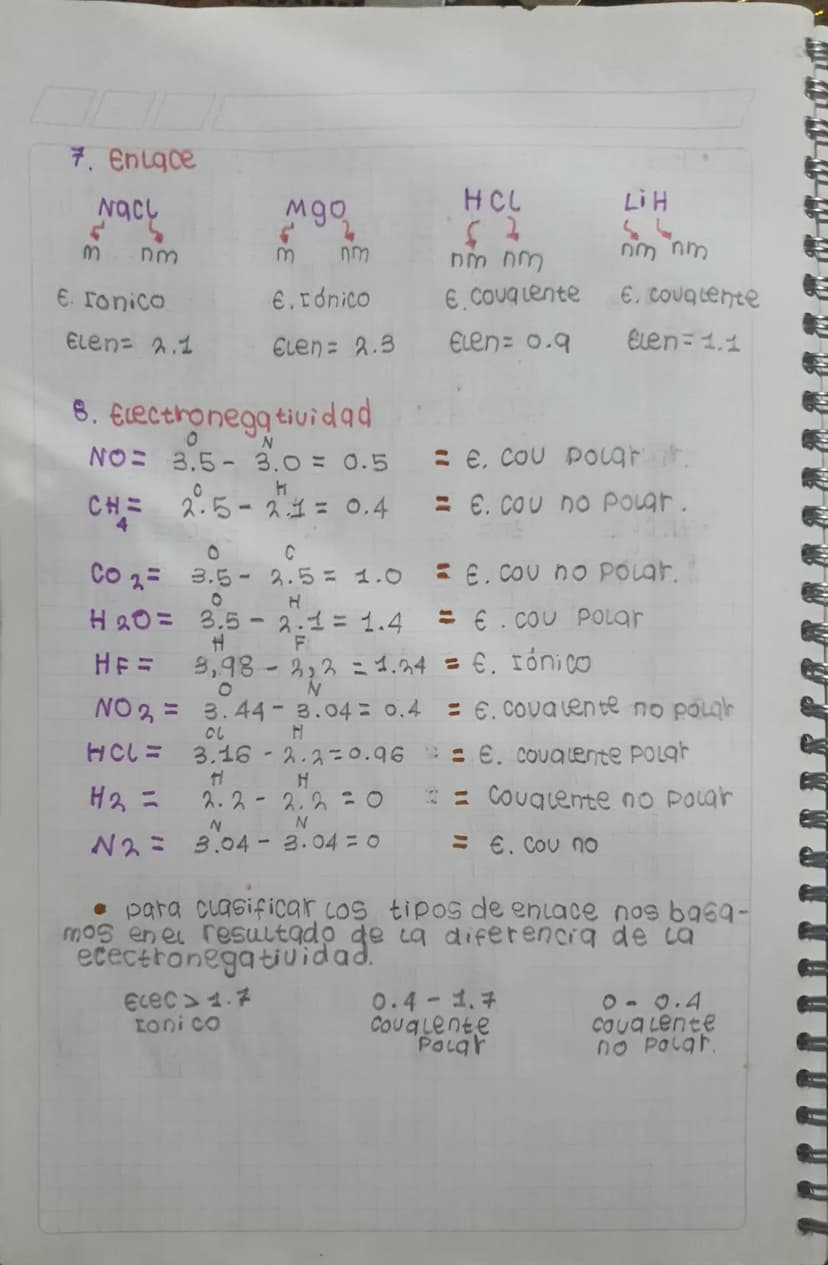 7. Enlace
NaCl MgO HCl LiH
m nm m nm nm nm nm nm
E. Ionico E. Iónico E. covalente E. covalente
Elen= 2.1 Elen= 2.3 Elen= 0.9 Elen= 1.1
8. Electronegatividad
O N
NO= 3.5 - 3.0 = 0.5 = E. cov polar
C H
CH4= 2.5 - 2.1 = 0.4 = E. cov no polar.
O C
CO2= 3.5 - 2.5 = 1.0 = E. cov no polar.
O H
H2O= 3.5 - 2.1 = 1.4 = E. cov polar
H F
HF= 3,98 - 2,2 = 1.34 = E. Iónico
O N
NO2= 3.44 - 3.04 = 0.4 = E. covalente no polar
Cl H
HCl= 3.16 - 2.2 = 0.96 = E. covalente polar
H H
H2= 2.2 - 2.2 = 0 = covalente no polar
N N
N2= 3.04 - 3.04 = 0 = E. cov no
• para clasificar los tipos de enlace nos basa-
mos en el resultado de la diferencia de la
ecectronegatividad.
Elec > 1.7 0.4 - 1.7 0 - 0.4
Ionico covalente covalente
polar no polar.